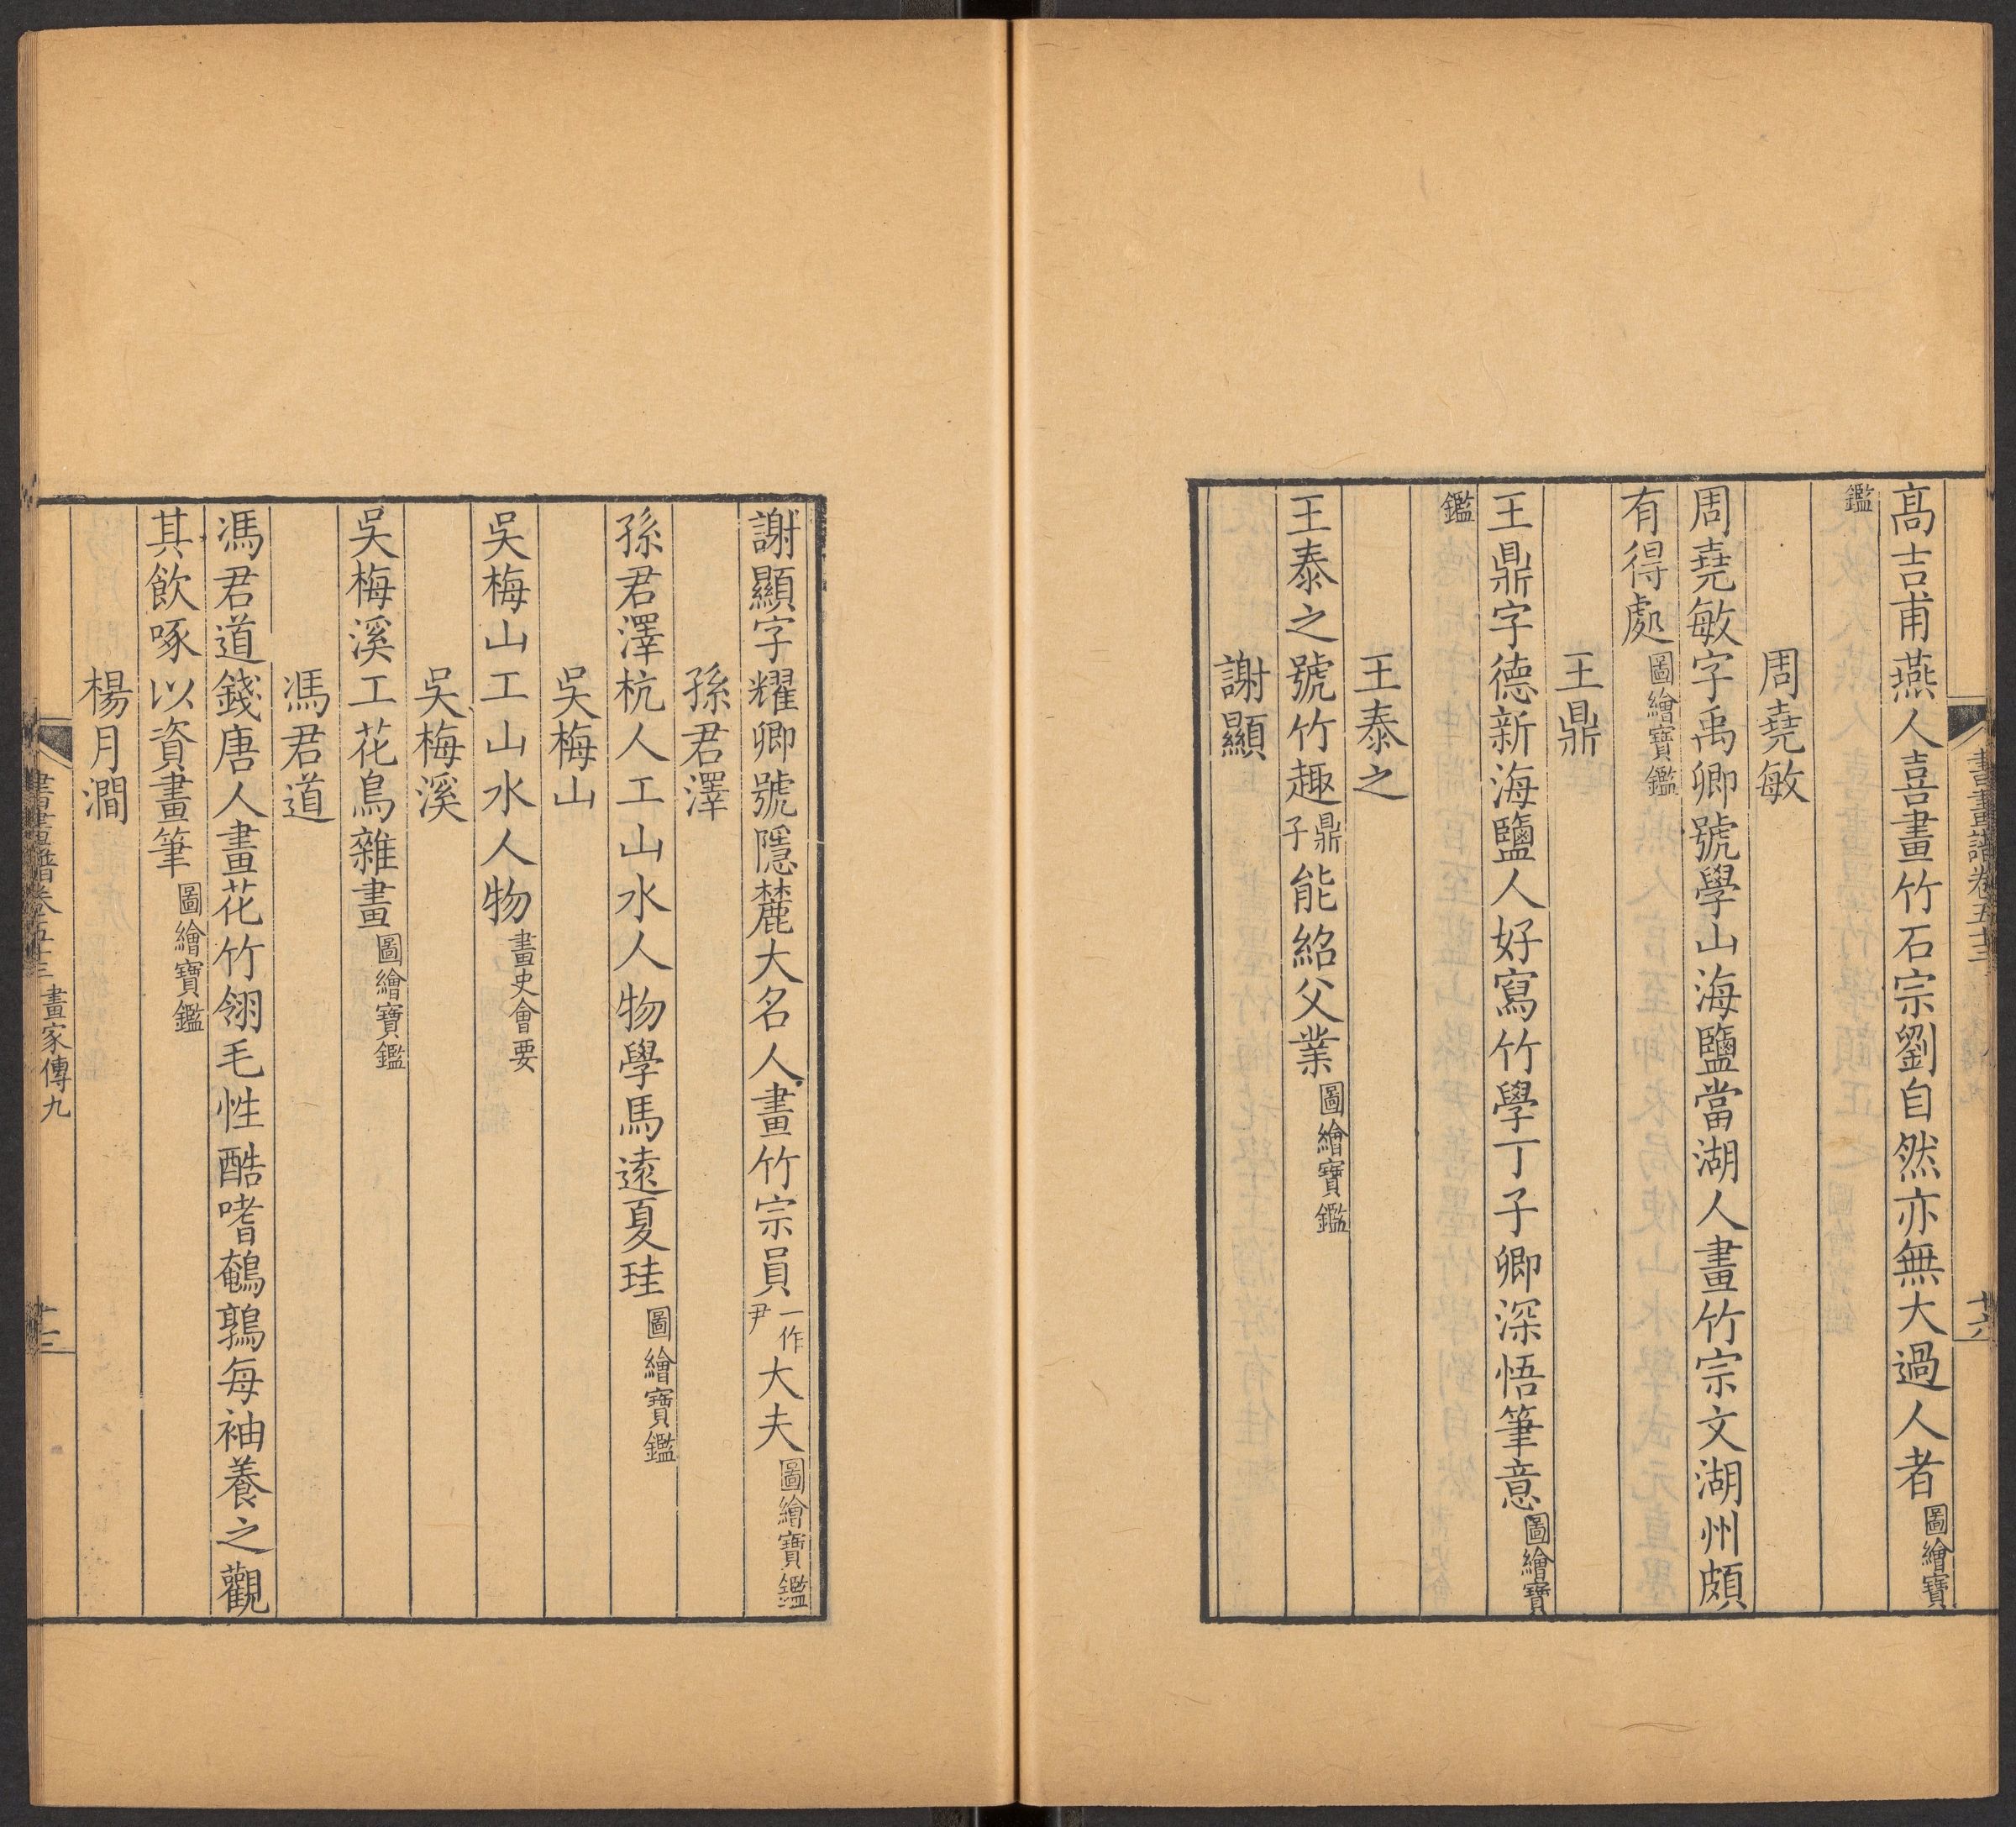 高吉甫燕人喜畫竹石宗劉自然亦無大過人者圖繪寶
鑑
周堯敏
周堯敏字禹卿號學山海鹽當湖人畫竹宗文湖州頗
有得處圖繪寶鑑
王鼎
王鼎字德新海鹽人好寫竹學丁子卿深悟筆意圖繪寶
鑑
王泰之
王泰之號竹趣鼎子能紹父業圖繪寶鑑
謝顯
謝顯字耀卿號隱麓大名人畫竹宗員一作尹大夫圖繪寶鑑
孫君澤
孫君澤杭人工山水人物學馬遠夏珪圖繪寶鑑
吳梅山
吳梅山工山水人物畫史會要
吳梅溪
吳梅溪工花鳥雜畫圖繪寶鑑
馮君道
馮君道錢唐人畫花竹翎毛性酷嗜鵪鶉每袖養之觀
其飲啄以資畫筆圖繪寶鑑
楊月澗
書畫譜卷五十三 畫家傳九